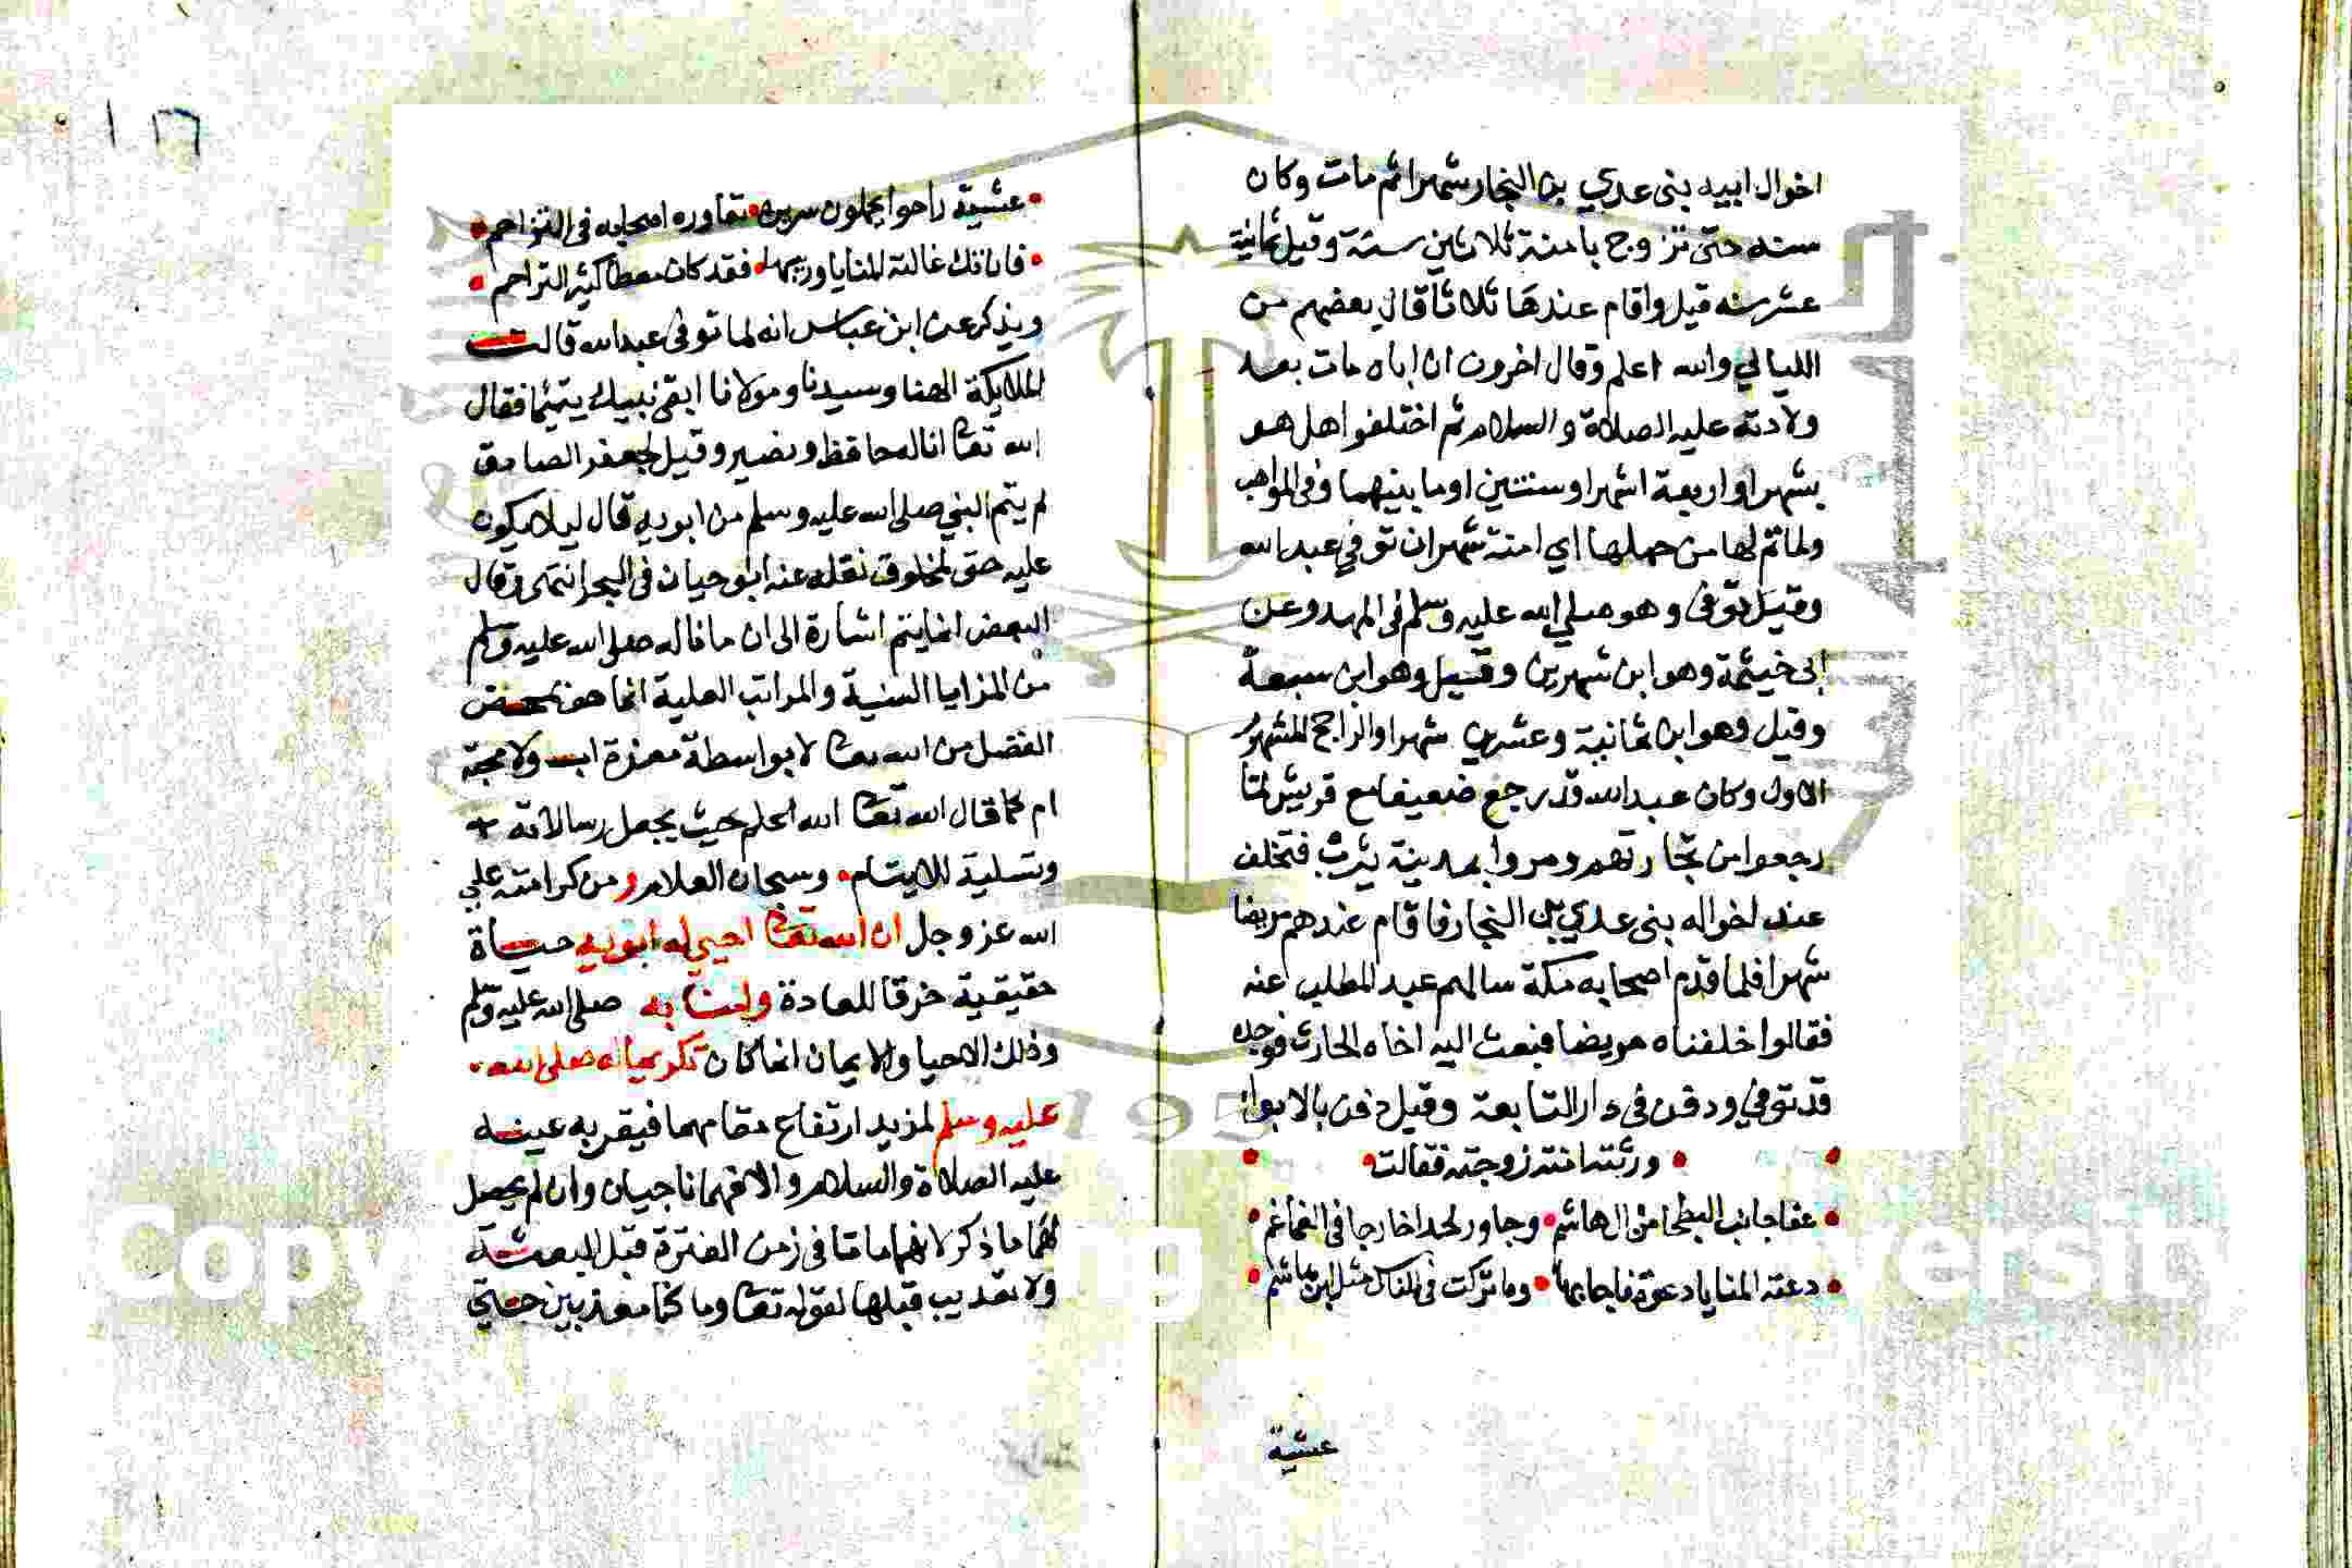 اخوال ابيه بنى عدي بن النجار شهرا ثم مات وكان
سنه حتى تزوج بامنة ثلاثين سنة وقيل ثمانية
عشر سنه قيل واقام عندها ثلاثا قال بعضهم من
الليالي والله اعلم وقال اخرون ان اباه مات بعد
ولادته عليه الصلاة والسلام ثم اختلفوا هل هو
بشهر او اربعة اشهر او سنتين او ما بينهما وفى المواهب
ولما تم لها من حملها اي امنة شهران توفي عبد الله
وقيل توفى وهو صلي الله عليه وسلم فى المهد وعن
ابى خيثمة وهو ابن شهرين وقيل وهو ابن سبعة
وقيل وهو ابن ثمانية وعشرين شهرا والراجح المشهور
الاول وكان عبد الله قد رجع ضعيفا مع قريش لما
رجعوا من تجارتهم ومروا بمدينة يثرب فتخلف
عند اخواله بنى عدي بن النجار فاقام عندهم مريضا
شهرا فلما قدم اصحابه مكة سالهم عبد المطلب عنه
فقالوا خلفناه مريضا فبعث اليه اخاه الحارث فوجده
قد توفي ودفن فى دار التابعة وقيل دفن بالابوا
ورثته امنة زوجته فقالت
عفا جانب البطحا من ال هاشم وجاور لحدا خارجا فى الغماغم
دعته المنايا دعوة فاجابها وما تركت فى الناس مثل ابن هاشم
عشية
١٦
عشية راحوا يحملون سريره تعاوره اصحابه فى التزاحم
فان تك غالته المنايا وريبها فقد كان معطا كثير التراحم
ويذكر عن ابن عباس انه لما توفى عبد الله قالت
الملايكة الهنا وسيدنا ومولانا ابقى نبيك يتيما فقال
الله تعا انا له حافظ ونصير وقيل لجعفر الصادق
لم يتم النبي صلى الله عليه وسلم من ابويه قال ليلا يكون
عليه حق لمخلوق نقله عنه ابو حيان فى البحر انتهى وقال
البعض انما يتم اشارة الى ان ما ناله صلى الله عليه وسلم
من المزايا السنية والمراتب العلية انما هو بمحض
الفضل من الله تعا لا بواسطة معزة اب ولا محبة
ام كما قال الله تعا الله اعلم حيث يجعل رسالاته
وتسلية للايتام وسبحان العلام ومن كرامته علي
الله عز وجل ان الله تعا احيي له ابويه حياة
حقيقية خرقا للعادة وامنا به صلى الله عليه وسلم
وذلك الاحيا والايمان انما كان تكريما له صلى الله
عليه وسلم لمزيد ارتفاع مقامهما فيقر به عينه
عليه الصلاة والسلام والا فهما ناجيان وان لم يحصل
لهما ما ذكر لانهما ماتا فى زمن الفترة قبل البعثة
ولا تعذيب قبلها لقوله تعا وما كنا معذبين حتي